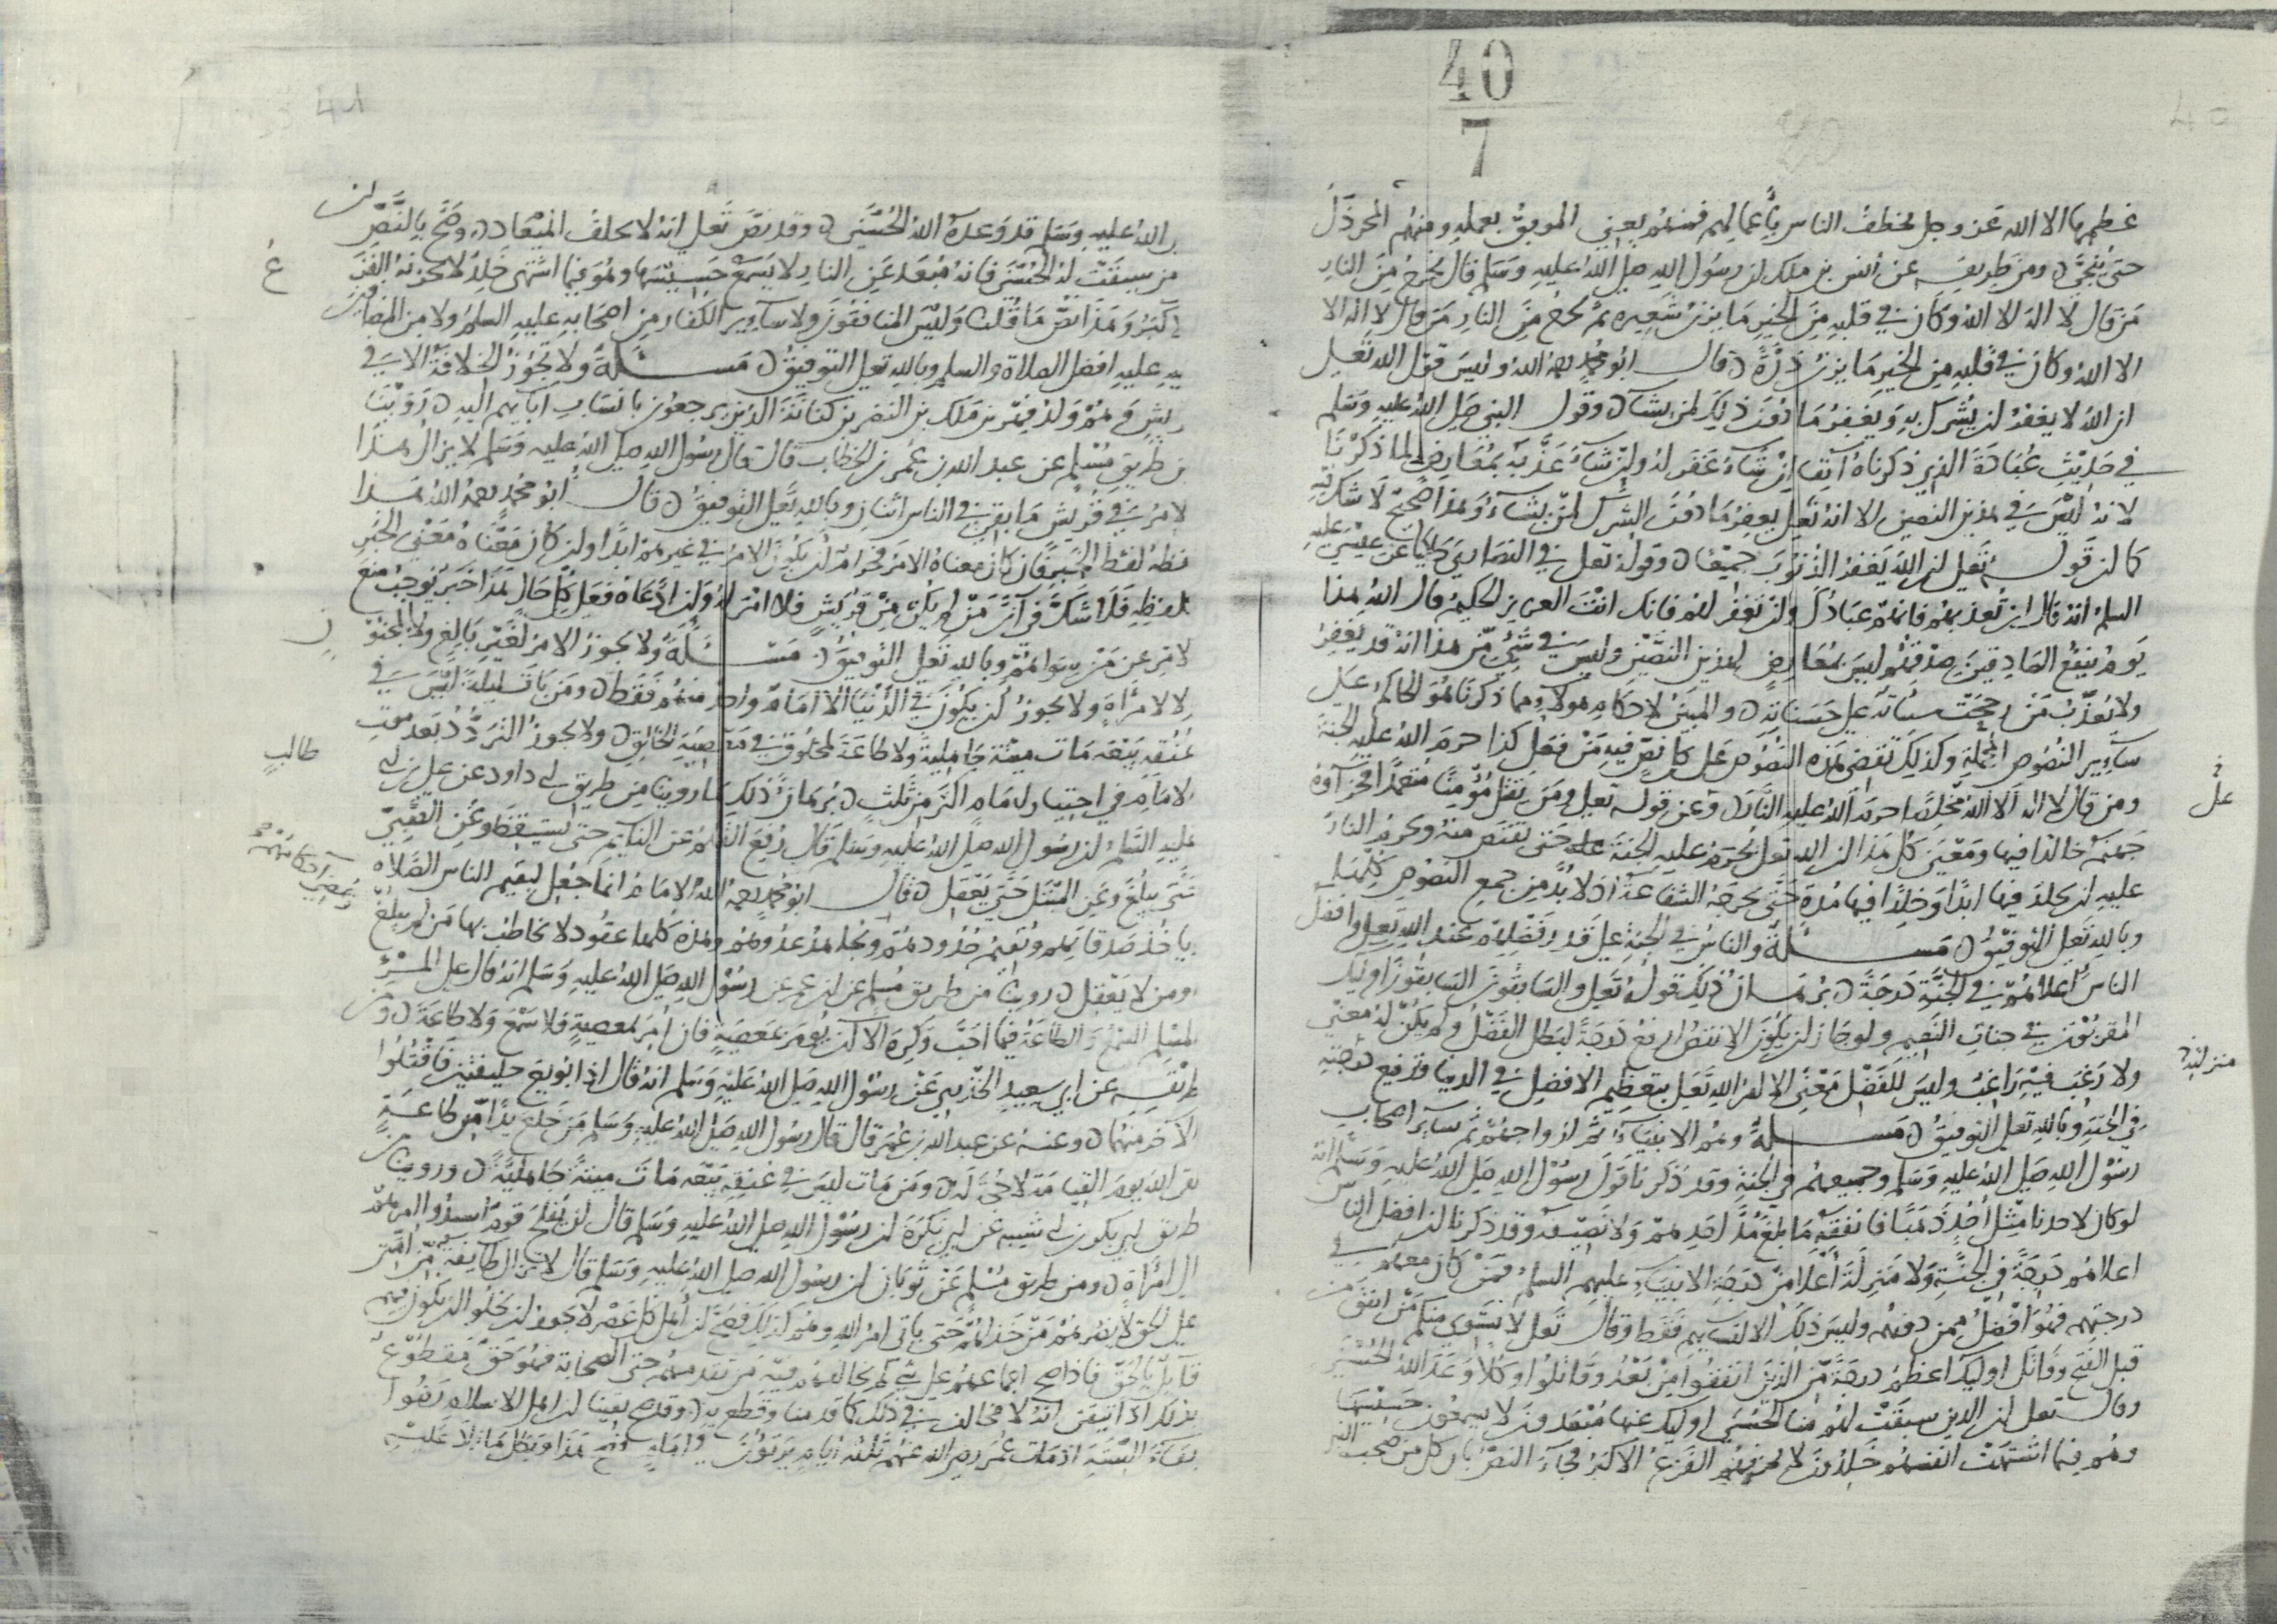 40
7
عظمها الا الله عز وجل تخطف الناس بأعمالهم فمنهم يعني الموبق بعمله ومنهم المخردل
حتى ينجى ومن طريقه عن أنس بن ملك ان رسول الله صلى الله عليه وسلم قال يخرج من النار
من قال لا اله الا الله وكان في قلبه من الخير ما يزن شعيره ثم يخرج من النار من قال لا اله الا
الا الله وكان في قلبه من الخير ما يزن ذرة قال ابو محمد رحمه الله وليس قول الله تعلى
ان الله لا يغفر ان يشرك به ويغفر ما دون ذلك لمن يشآ وقول النبي صلى الله عليه وسلم
في حديث عبادة الذي ذكرناه آنفا ان شآء غفر له وان شآء عذبه بمعارض لما ذكرنا
لانه ليس في هذين النصين الا انه تعلى يغفر ما دون الشرك لمن يشآء وهذا صحيح لا شك فيه
كما ان قوله تعلى ان الله يغفر الذنوب جميعا وقوله تعلى في النصارى حاكيا عن عيسى عليه
السلم انه قال ان تعذبهم فانهم عبادك وان تغفر لهم فانك انت العزيز الحكيم قال الله هذا
يوم ينفع الصادقين صدقهم ليس بمعارض لهذين النصين وليس في شيء من هذا انه قد يغفر
ولا يعذب من رجحت سيئاته على حسناته والمبين لاحكام هولاء مما ذكرنا هو الحاكم على
سآير النصوص المجملة وكذلك تقضي هذه النصوص على كل نص فيه من فعل كذا حرم الله عليه الجنة
ومن قال لا اله الا الله مخلصا حرم الله عليه النار وعن قوله تعلى ومن يقتل مؤمنا متعمدا فجزآؤه
جهنم خالدا فيها ومعنى كل هذا ان الله تعلى يحرم عليه الجنة حتى يقتص منه ويحرم النار
عليه ان يخلد فيها ابدا وخالدا فيها مدة حتى تخرجه الشفاعة اذ لا بد من جمع النصوص كلها
وبالله تعلى التوفيق مسئلة والناس في الجنة على قدر فضلهم عند الله تعلى وافضل
الناس أعلاهم في الجنة درجة برهان ذلك قوله تعلى والسابقون السابقون اوليك
المقربون في جنات النعيم ولو جاز ان يكون الانقص ارفع درجة لبطل الفضل ولم يكن له معنى
ولا رغب فيه راغب وليس للفضل معنى الا امر الله تعلى بتعظيم الافضل في الدنيا وترفيع درجته
في الجنة وبالله تعلى التوفيق مسئلة وهم الانبيآء ثم ازواجهم ثم سآير اصحاب
رسول الله صلى الله عليه وسلم وجميعهم في الجنة وقد ذكرنا قول رسول الله صلى الله عليه وسلم انه
لو كان لاحدنا مثل أحد ذهبا فانفقه ما بلغ مد احدهم ولا نصيفه وقد ذكرنا ان افضل الناس
اعلاهم درجة في الجنة ولا منزلة أعلا من درجة الانبيآء عليهم السلم فمن كان معهم في
درجتهم فهو أفضل ممن دونهم وليس ذلك الا لنسآيهم فقط وقال تعلى لا يستوي منكم من انفق من
قبل الفتح وقاتل اوليك اعظم درجة من الذين انفقوا من بعد وقاتلوا وكلا وعد الله الحسنى
وقال تعلى ان الذين سبقت لهم منا الحسنى اوليك عنها مبعدون لا يسمعون حسيسها
وهم فيما اشتهت انفسهم خلدون لا يحزنهم الفزع الاكبر فجآء النص بان كل من صحب النبي
على
منزلته
الله عليه وسلم قد وعده الله الحسنى وقد نص تعلى انه لا يخلف الميعاد وصح بالنص ان
من سبقت له الحسنى فانه مبعد عن النار لا يسمع حسيسها وهو فيما اشتهى خلد لا يحزنه الفزع
الاكبر وهذا نص ما قلنا وليس المنافقون ولا سآير الكفار من اصحابه عليه السلم ولا من المضافين
اليه عليه افضل الصلاة والسلم وبالله تعلى التوفيق مسئلة ولا تجوز الخلافة الا في
قريش وهم ولد فهر بن ملك بن النضر بن كنانة الذين يرجعون بانساب آبآيهم اليه روينا
من طريق مسلم عن عبد الله بن عمر بن الخطاب قال قال رسول الله صلى الله عليه وسلم لا يزال هذا
الامر في قريش ما بقي في الناس اثنان وبالله تعلى التوفيق قال ابو محمد رحمه الله هذا
لفظه لفظ الخبر فان كان معناه الامر فحرام ان يكون الامر في غيرهم ابدا وان كان معناه معنى الخبر
كلفظه فلا شك في أن من لم يكن من قريش فلا امر له وان ادعاه فعلى كل حال هذا خبر يوجب منع
الامر عن من سواهم وبالله تعلى التوفيق مسئلة ولا يجوز الامر لغير بالغ ولا لمجنون
ولا لامرأة ولا يجوز ان يكون في الدنيا الا امام واحد منهم فقط ومن بات ليلة ليس في
عنقه بيعة مات ميتة جاهلية ولا طاعة لمخلوق في معصية الخالق ولا يجوز التردد بعد موت
الامام في اختيار امام اكثر من ثلث برهان ذلك ما روينا من طريق ابي داود عن علي بن ابي
طالب
عليه السلم ان رسول الله صلى الله عليه وسلم قال رفع القلم عن النايم حتى يستيقظ وعن الصبي
حتى يبلغ وعن المبتلى حتى يعقل قال ابو محمد رحمه الله الامام انما جعل ليقيم للناس الصلاة
ويمضي احكامهم
وياخذ صدقاتهم ويقيم حدودهم ويجاهد عدوهم وهذه كلها عقود لا يخاطب بها من لم يبلغ
ومن لا يعقل روينا من طريق مسلم عن ابن عمر عن رسول الله صلى الله عليه وسلم انه قال على المرء
المسلم السمع والطاعة فيما احب وكره الا ان يؤمر بمعصية فان أمر بمعصية فلا سمع ولا طاعة ومن
طريقه عن ابي سعيد الخدري عن رسول الله صلى الله عليه وسلم انه قال اذا بويع خليفتين فاقتلوا
الآخر منهما وعنه عن عبد الله بن عمر قال قال رسول الله صلى الله عليه وسلم من خلع يدا من طاعة
لقي الله يوم القيامة لا حجة له ومن مات ليس في عنقه بيعة مات ميتة جاهلية وروينا من
طريق ابي بكر بن ابي شيبه عن ابي بكرة ان رسول الله صلى الله عليه وسلم قال لن يفلح قوم أسندوا امرهم
الى امرأة ومن طريق مسلم عن ثوبان ان رسول الله صلى الله عليه وسلم قال لا تزال طايفة من امتي
على الحق لا يضرهم من خذلهم حتى ياتي امر الله وهم كذلك فصح ان أهل كل عصر لا يجوز ان يخلوا ان يكون فيهم
قآيل بالحق فاذا صح اجماعهم على شيء لم يخالفهم فيه من تقدمهم حتى الصحابة فهو حق مقطوع
بذلك اذا تيقن انه لا مخالف في ذلك كما قدمنا وقطع به وقد صح يقينا ان اهل الاسلام رضوا
بقآء الستة اذ مات عمر رضي الله عنهم ثلثة أيام يرتؤون في امام فصح هذا وبطل ما زاد عليه